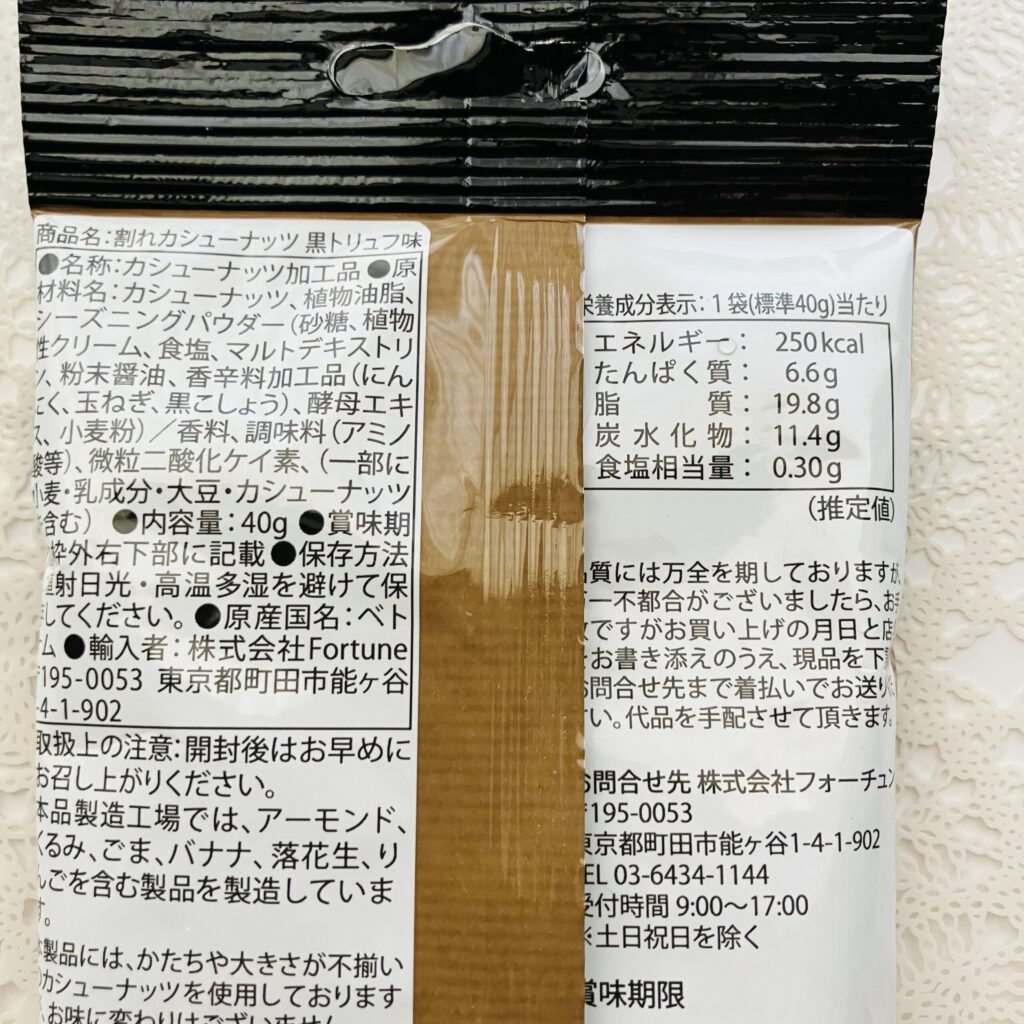 商品名：割れカシューナッツ 黒トリュフ味
●名称：カシューナッツ加工品 ●原
材料名：カシューナッツ、植物油脂、
シーズニングパウダー（砂糖、植物
性クリーム、食塩、マルトデキストリ
ン、粉末醤油、香辛料加工品（にん
にく、玉ねぎ、黒こしょう）、酵母エキ
ス、小麦粉）／香料、調味料（アミノ
酸等）、微粒二酸化ケイ素、（一部に
小麦・乳成分・大豆・カシューナッツ
を含む） ●内容量：40g ●賞味期
枠外右下部に記載 ●保存方法
直射日光・高温多湿を避けて保
存してください。 ●原産国名：ベト
ナム ●輸入者：株式会社Fortune
〒195-0053 東京都町田市能ヶ谷
-4-1-902
取扱上の注意：開封後はお早めに
お召し上がりください。
本品製造工場では、アーモンド、
くるみ、ごま、バナナ、落花生、り
んごを含む製品を製造していま
す。
本製品には、かたちや大きさが不揃い
のカシューナッツを使用しております
お味に変わりはございません
栄養成分表示：1袋(標準40g)当たり
エネルギー： 250kcal
たんぱく質： 6.6g
脂質： 19.8g
炭水化物： 11.4g
食塩相当量： 0.30g
（推定値）
品質には万全を期しておりますが、
万一不都合がございましたら、お手
数ですがお買い上げの月日と店
をお書き添えのうえ、現品を下記
お問合せ先まで着払いでお送りくだ
さい。代品を手配させて頂きます。
お問合せ先 株式会社フォーチュン
〒195-0053
東京都町田市能ヶ谷1-4-1-902
TEL 03-6434-1144
受付時間 9:00～17:00
※土日祝日を除く
賞味期限